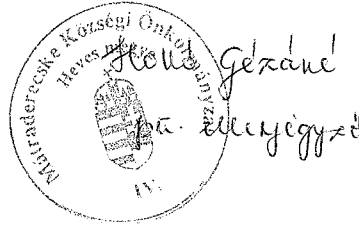 Mátraderecske Községi Önkormányzat
Heves megye
Gézáné
pü. ellenjegyző
IV.